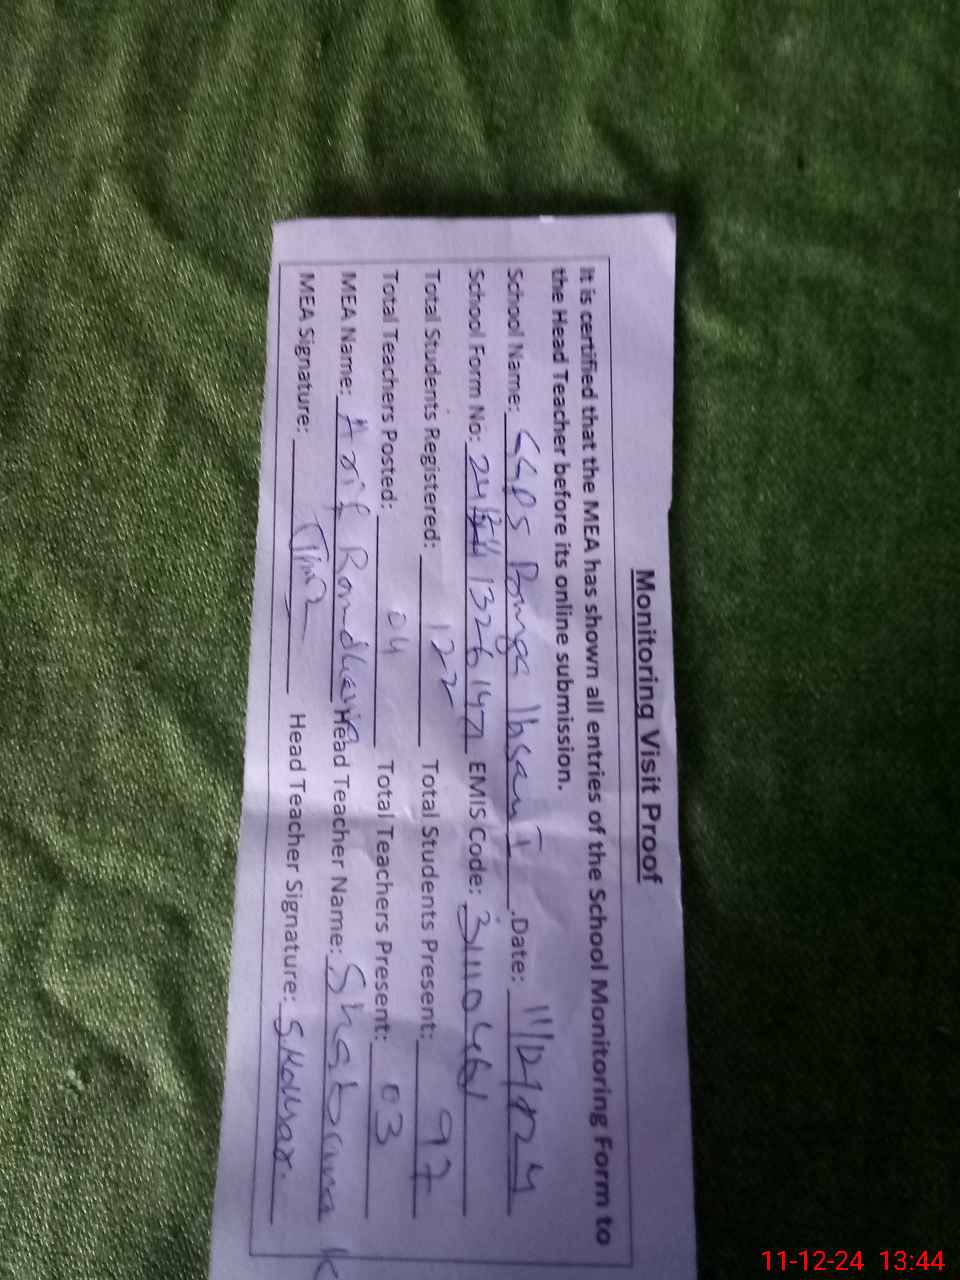 Monitoring Visit Proof
It is certified that the MEA has shown all entries of the School Monitoring Form to
the Head Teacher before its online submission.
School Name: GGPS Ihsan .Date: 11/12/24
School Form No: EMIS Code:
Total Students Registered: 122 Total Students Present: 97
Total Teachers Posted: 04 Total Teachers Present: 03
MEA Name: Arif Randhawa Head Teacher Name: Shabana
MEA Signature: Head Teacher Signature: SKousar.
11-12-24 13:44